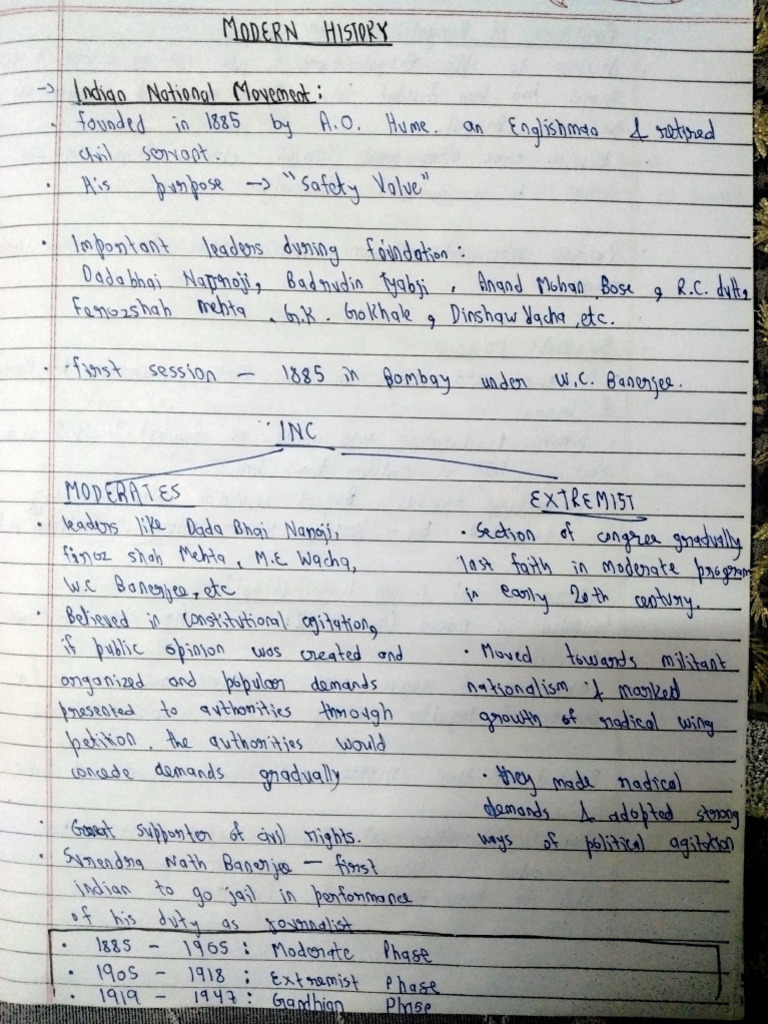 MODERN HISTORY
→ Indian National Movement:
• founded in 1885 by A.O. Hume. an Englishman & retired
civil servant.
• His purpose → "Safety Valve"
• Important leaders during foundation:
Dadabhai Naoroji, Badrudin Tyabji, Anand Mohan Bose, R.C. dutt,
Ferozshah mehta, G.K. Gokhale, Dinshaw Vacha, etc.
• first session – 1885 in Bombay under W.C. Banerjee.
INC
MODERATES
• leaders like Dada Bhai Naroji,
firoz shah Mehta, M.E Wacha,
W.C Banerjee, etc
• Believed in constitutional agitation,
if public opinion was created and
organized and popular demands
presented to authorities through
petition, the authorities would
concede demands gradually
• Great supporter of civil rights.
• Surendra Nath Banerjee – first
indian to go jail in performance
of his duty as journalist
EXTREMIST
• section of congree gradually
lost faith in moderate program
in early 20th century.
• Moved towards militant
nationalism & marked
growth of radical wing
• they made radical
demands & adopted strong
ways of political agitation
• 1885 – 1905 : Moderate Phase
• 1905 – 1918 : Extremist Phase
• 1919 – 1947 : Gandhian Phase